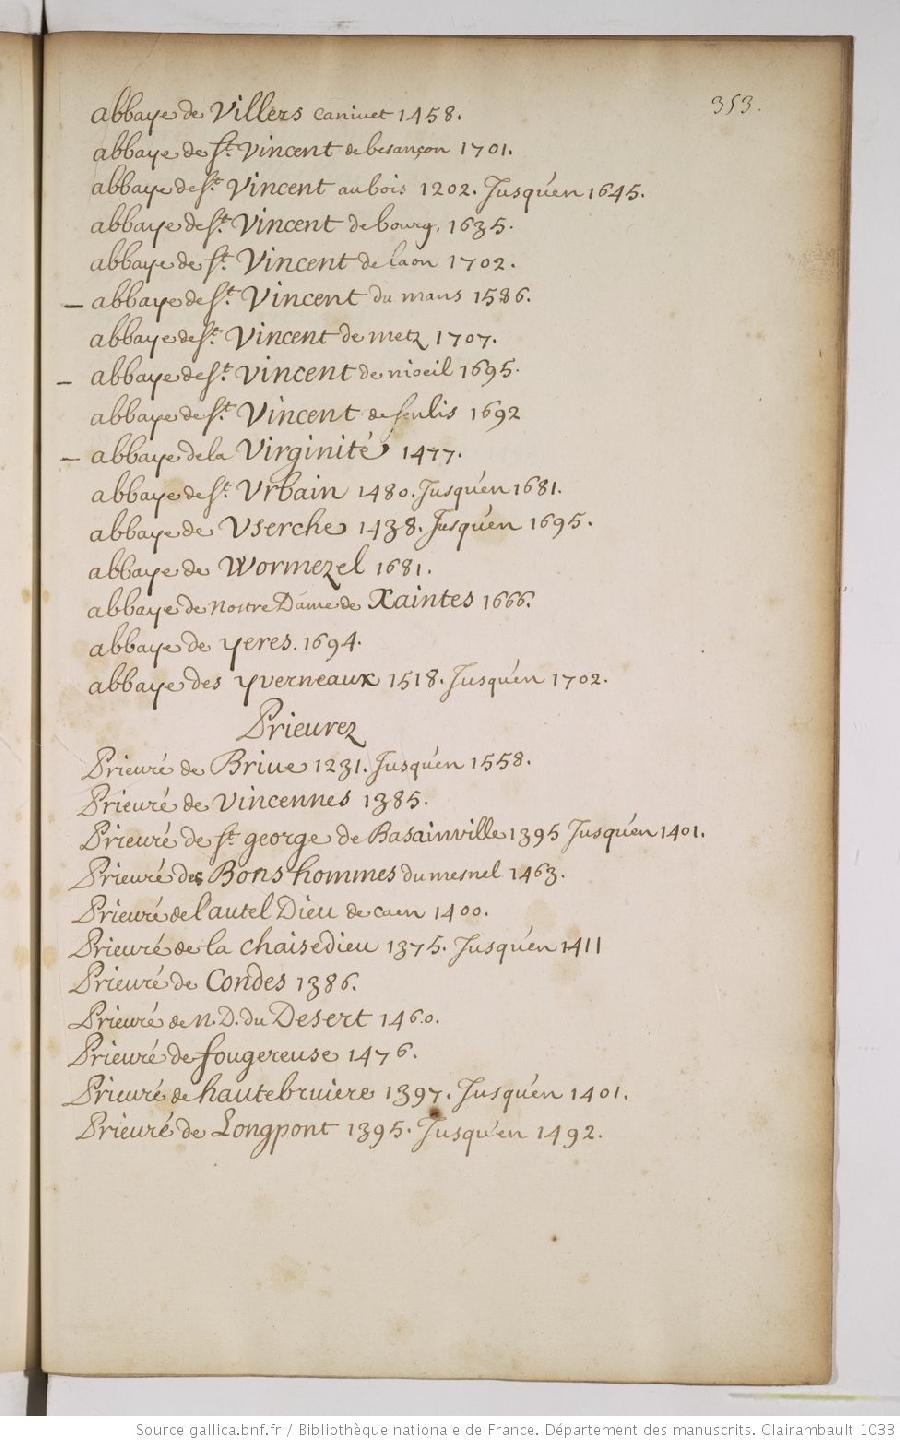 353.
abbaye de Villers canivet 1458.
abbaye de st. Vincent de besançon 1701.
abbaye de st. Vincent au bois 1202. Jusqu'en 1645.
abbaye de st. Vincent de bourg, 1635.
abbaye de st. Vincent de laon 1702.
– abbaye de st. Vincent du mans 1586.
abbaye de st. Vincent de metz 1707.
– abbaye de st. Vincent de nioeil 1695.
abbaye de st. Vincent de senlis 1692
– abbaye de la Virginité 1477.
abbaye de st. Vrbain 1480. Jusqu'en 1681.
abbaye de Vserche 1438. Jusqu'en 1695.
abbaye de Wormezel 1681.
abbaye de nostre Dame de Xaintes 1666.
abbaye de yeres. 1694.
abbaye des yverneaux 1518. Jusqu'en 1702.
Prieurez
Prieuré de Briue 1231. Jusqu'en 1558.
Prieuré de Vincennes 1385.
Prieuré de st. george de Basainville 1395 Jusqu'en 1401.
Prieuré des Bons hommes du mesnel 1463.
Prieuré de l'autel Dieu de caen 1400.
Prieuré de la chaisedieu 1375. Jusqu'en 1411
Prieuré de Condes 1386.
Prieuré de n. D. du Desert 1460.
Prieuré de fougereuse 1476.
Prieuré de hautebruiere 1397. Jusqu'en 1401.
Prieuré de Longpont 1395. Jusqu'en 1492.
Source gallica.bnf.fr / Bibliothèque nationale de France. Département des manuscrits. Clairambault 1033